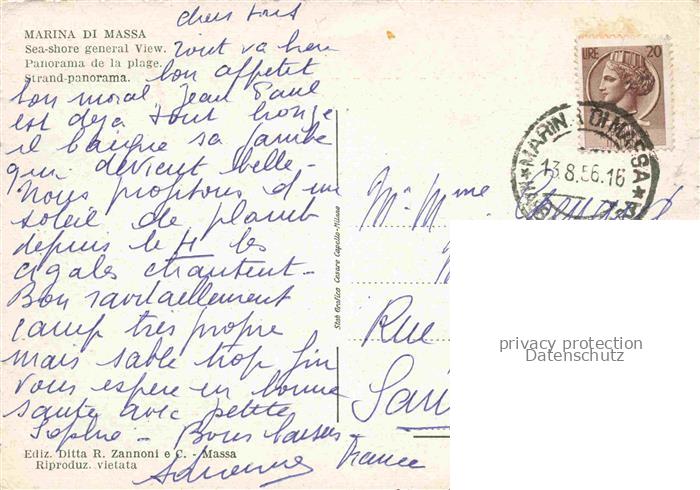 chers tous
MARINA DI MASSA
Sea-shore general View.
Panorama de la plage.
Strand-panorama.
Tout va bien
bon appetit
bon moral Jean Paul
est déjà tout rouge
il baigne sa jambe
qui devient belle -
Nous profitons d'un
soleil de plomb
depuis le 4 les
cigales chantent -
Bon ravitaillement
camp très propre
mais sable trop fin
vous espère en bonne
santé avec petite
Sophie - Bons baisers -
Ediz. Ditta R. Zannoni e C. - Massa
Riproduz. vietata
Stab Grafico Cesare Capello-Milano
LIRE 20
MARINA DI MASSA
13.8.56.16
Mr Mme
Rue
France
privacy protection
Datenschutz